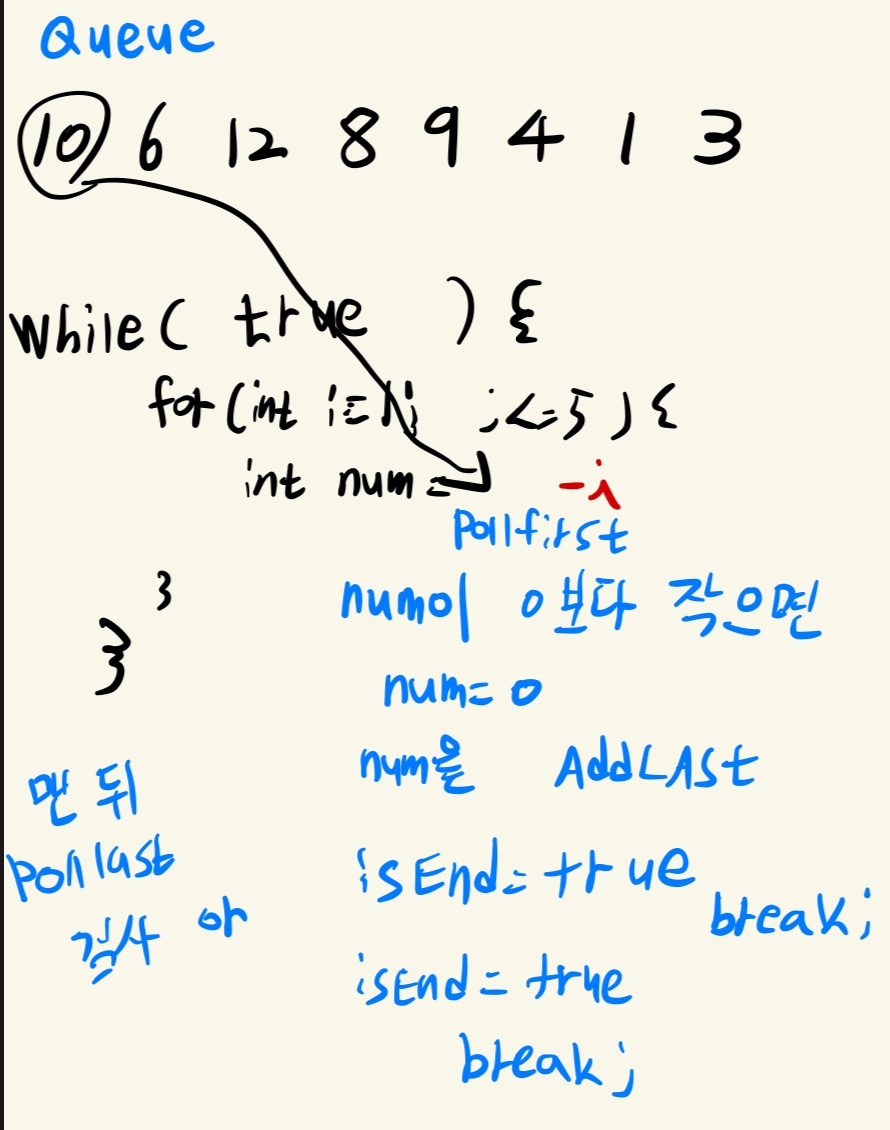 Queue
10 6 12 8 9 4 1 3
while( true ) {
for(int i=1; ;<=5) {
int num= -i
Pollfirst
num이 0보다 작으면
}
num=0
}
num을 AddLASt
맨 뒤
Polllast
isEnd=true
break;
검사 or
isEnd=true
break;